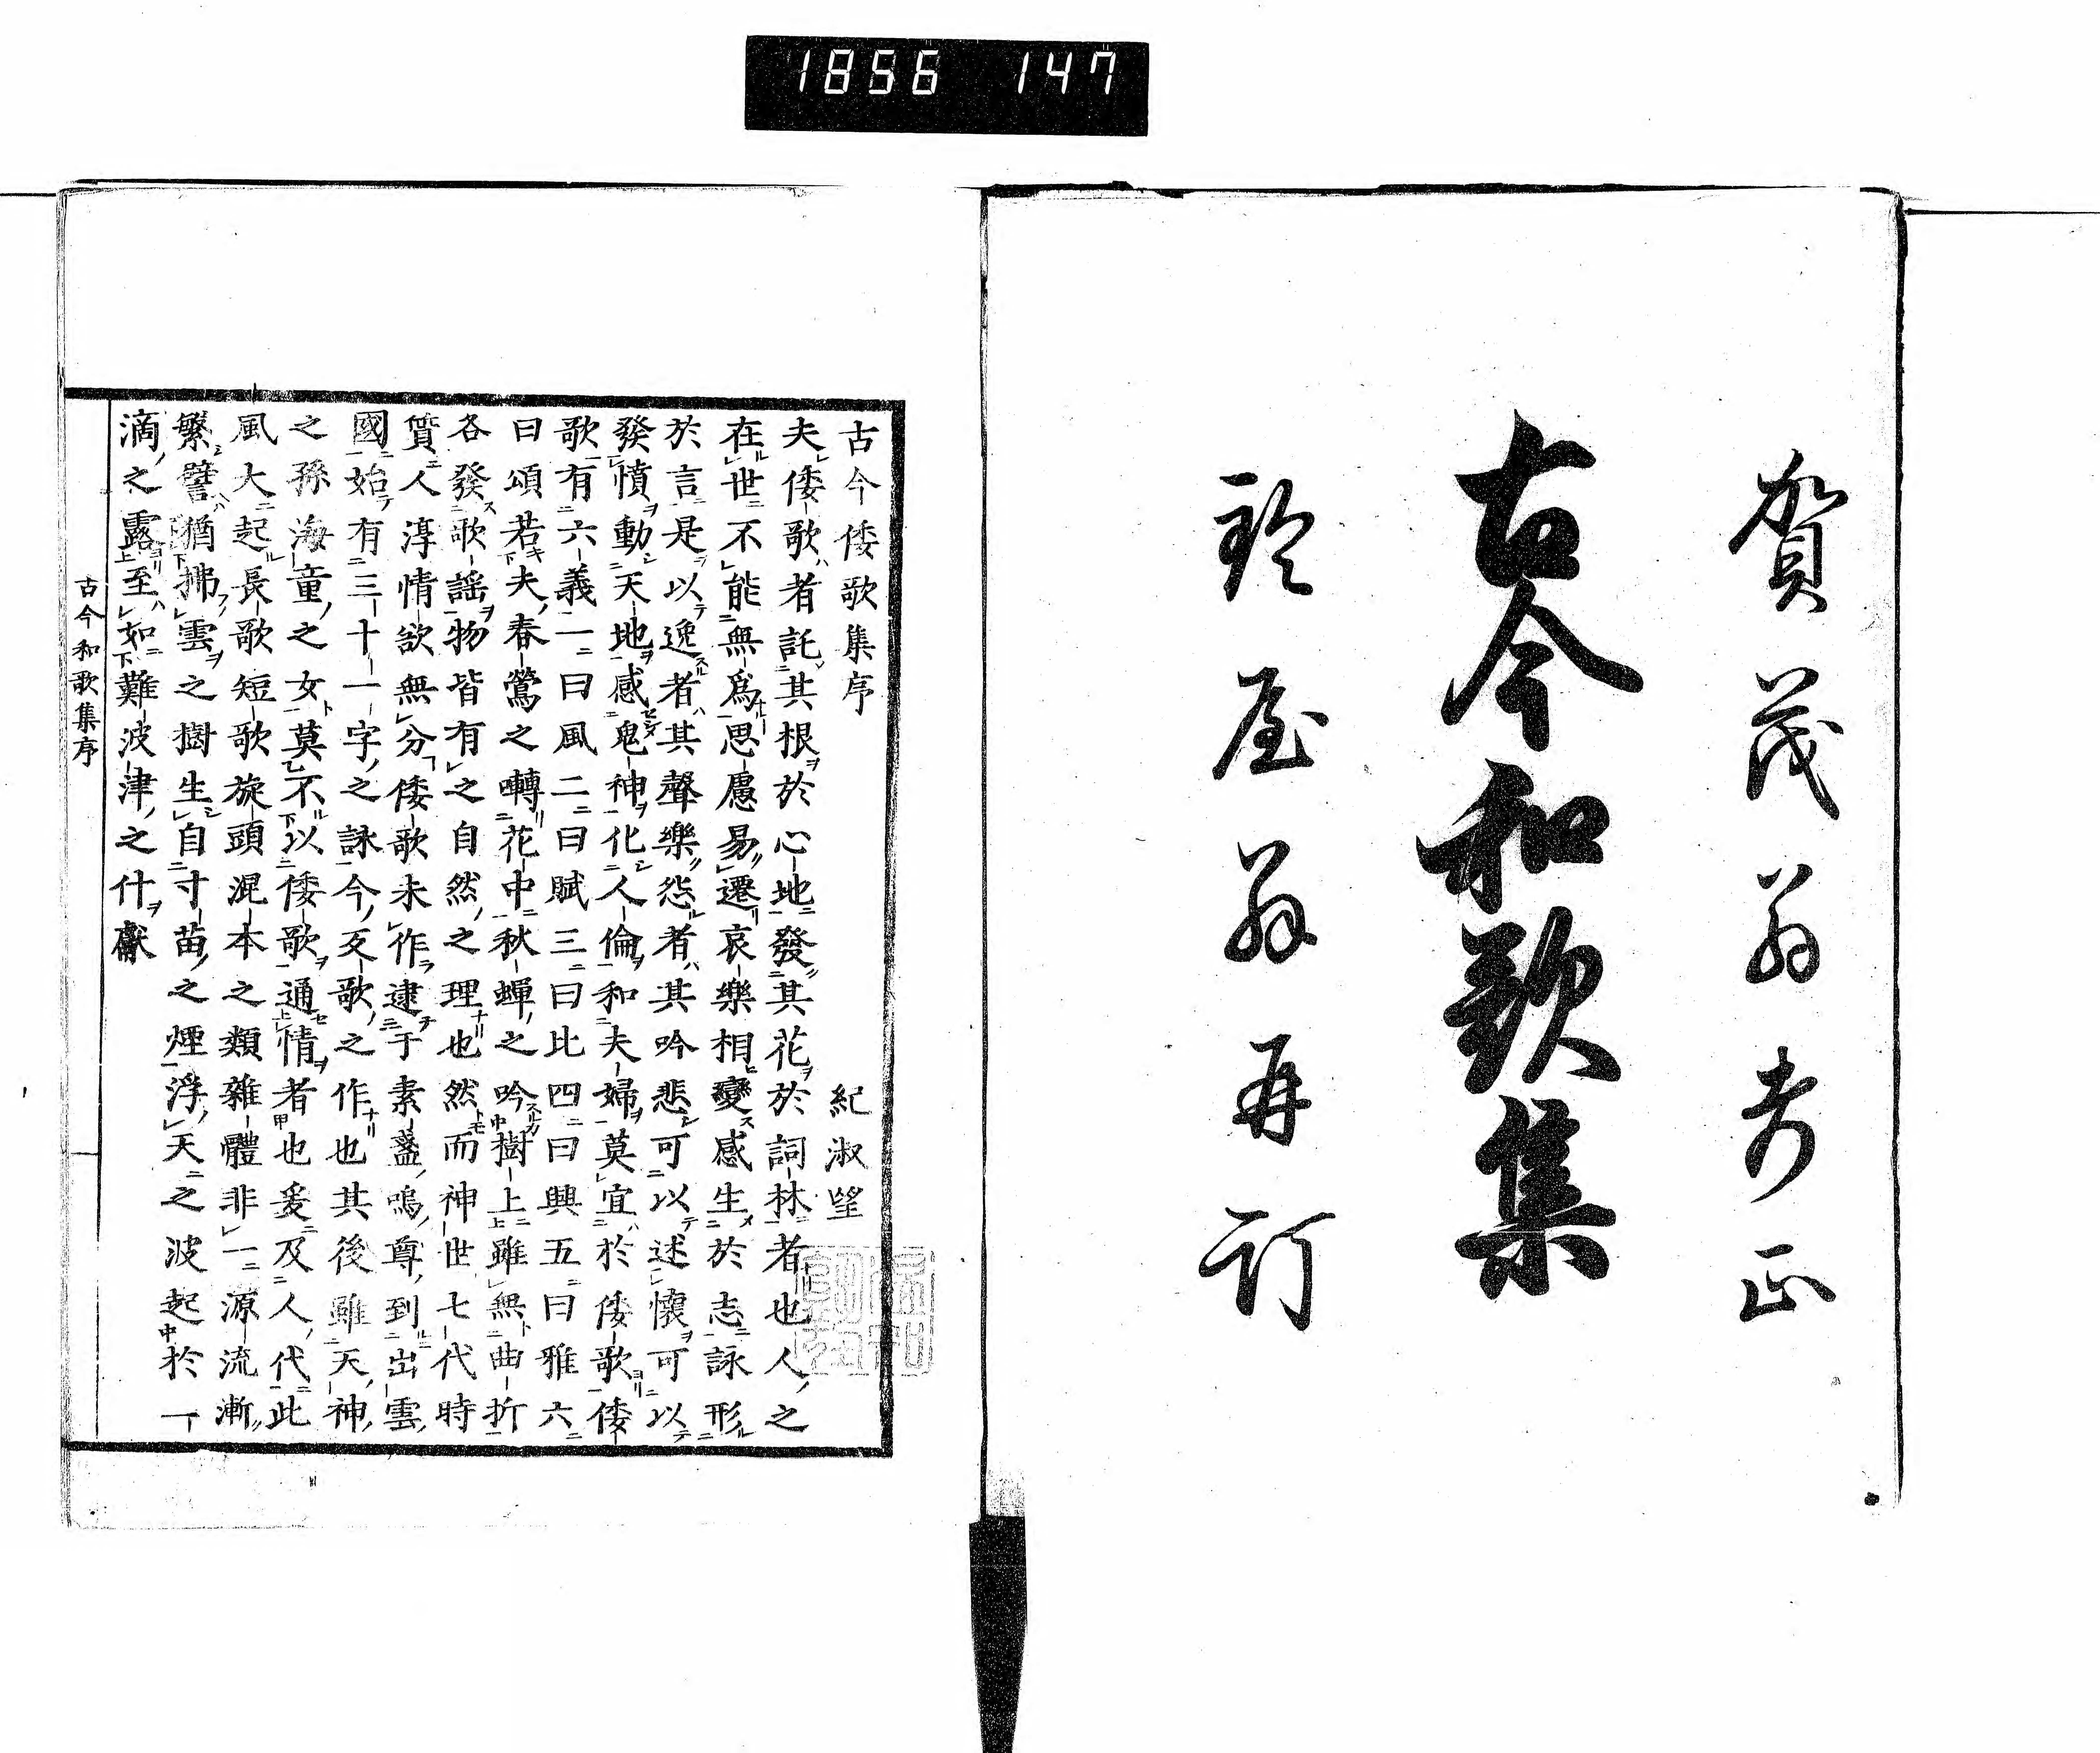 1856 147
賀茂翁考正
古今和歌集
鈴屋翁再訂
古今倭歌集序 紀淑望
夫倭歌者託其根於心地發其花於詞林者也人之
在世不能無爲思慮易遷哀樂相變感生於志詠形
於言是以逸者其聲樂怨者其吟悲可以述懷可以
發憤動天地感鬼神化人倫和夫婦莫宜於倭歌倭
歌有六義一曰風二曰賦三曰比四曰興五曰雅六
曰頌若夫春鶯之囀花中秋蟬之吟樹上雖無曲折
各發歌謠物皆有之自然之理也然而神世七代時
質人淳情欲無分倭歌未作逮于素盞嗚尊到出雲
國始有三十一字之詠今反歌之作也其後雖天神
之孫海童之女莫不以倭歌通情者也爰及人代此
風大起長歌短歌旋頭混本之類雜體非一源流漸
繁譬猶拂雲之樹生自寸苗之煙浮天之波起於一
滴之露至如難波津之什獻
古今和歌集序